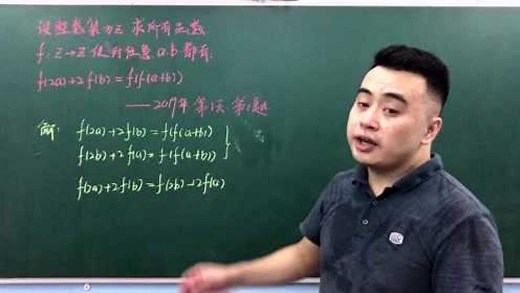 设整数集为Z 求所有函数
f:Z→Z 使对任意 a.b 都有:
f(2a)+2f(b)=f(f(a+b))
——2019年 第1天 第1题
解: f(2a)+2f(b)=f(f(a+b))
f(2b)+2f(a)=f(f(a+b))
f(2a)+2f(b)=f(2b)+2f(a)